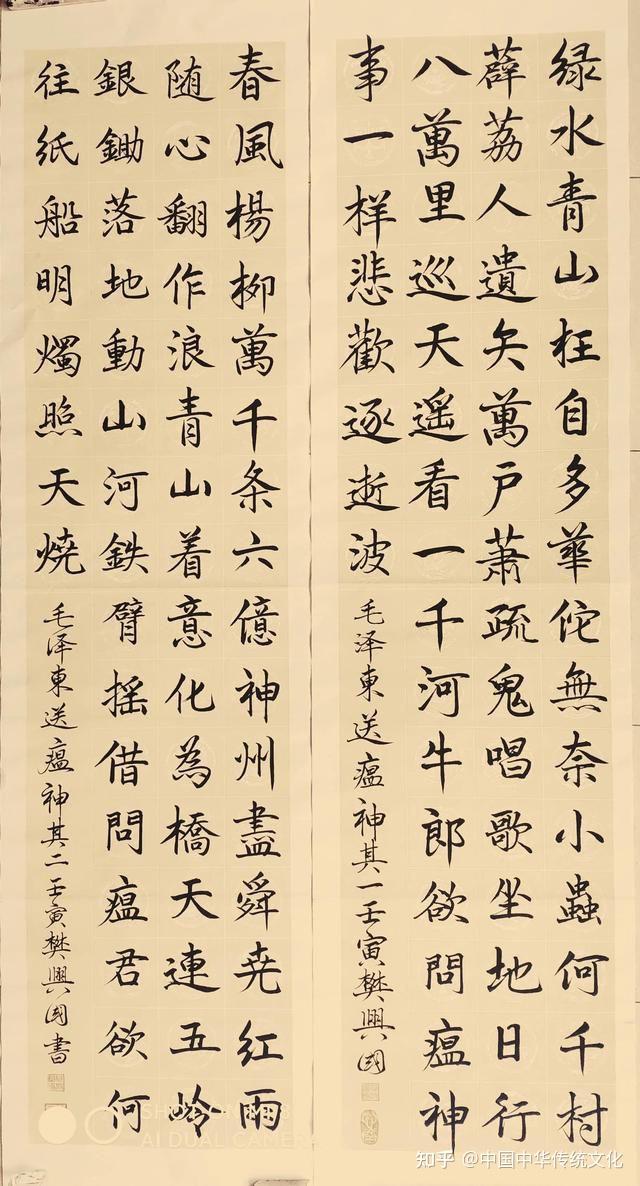 绿水青山枉自多華佗無奈小蟲何千村
薜荔人遺矢萬戶蕭疏鬼唱歌坐地日行
八萬里巡天遥看一千河牛郎欲問瘟神
事一样悲歡逐逝波
毛泽東送瘟神其一壬寅樊興國
春風楊柳萬千条六億神州盡舜尭紅雨
随心翻作浪青山着意化為橋天連五岭
銀鋤落地動山河鉄臂摇借問瘟君欲何
往紙船明燭照天燒
毛泽東送瘟神其二壬寅樊興國書
SHOT ON MI 8
AI DUAL CAMERA
知乎 @中国中华传统文化